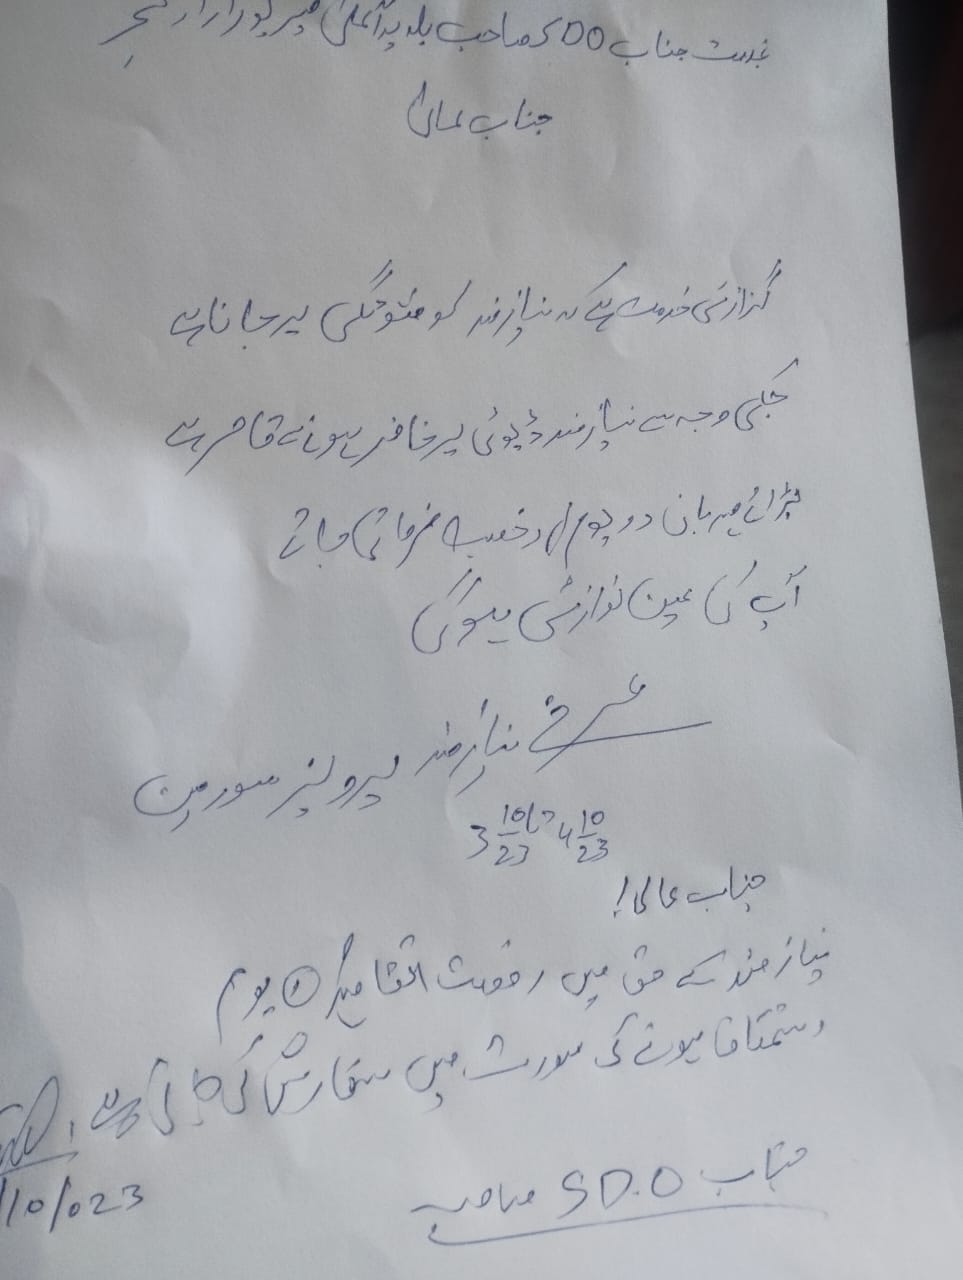 بخدمت جناب SDO صاحب
جناب عالی
گزارش خدمت ہے کہ نیازمند کو فوتگی پر جانا ہے
جسکی وجہ سے نیازمند ڈیوٹی پر حاضر ہونے سے قاصر ہے
برائے مہربانی دو یوم رخصت فرمائی جائے
آپ کی عین نوازش ہوگی
عرضے نیازمند پرویز
3 10/23 تا 4 10/23
جناب عالی!
نیازمند کے حق میں رخصت اتفاقیہ یوم
استحقاق ہونے کی صورت میں سفارش کی جاتی ہے
/10/023
جناب S.D.O صاحب